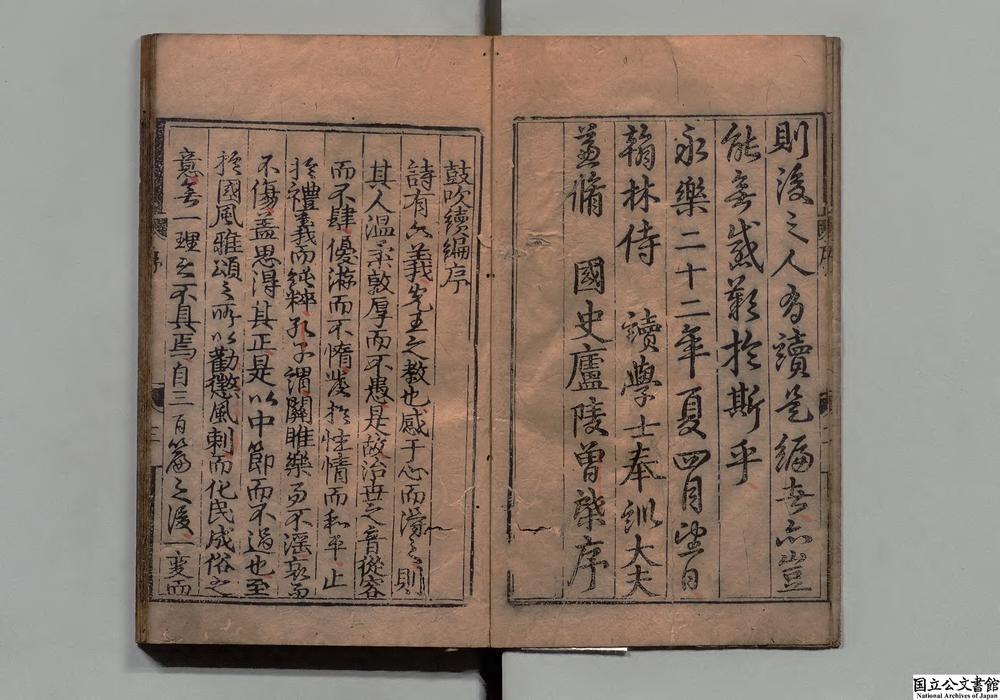 則後之人有讀是編者亦豈
能無感歎於斯乎
永樂二十二年夏四月望日
翰林侍 讀學士奉訓大夫
兼脩 國史廬陵曾棨序
序
鼓吹續編序
詩有六義先王之教也感于心而蕩之則
其人溫柔敦厚而不愚是故治世之音從容
而不肆優游而不惰發於性情而和平止
於禮義而純粹孔子謂關雎樂而不淫哀而
不傷蓋思得其正是以中節而不過也至
於國風雅頌之所以勸懲風刺而化民成俗之
意無一理之不具焉自三百篇之後一變而
序
三
国立公文書館
National Archives of Japan